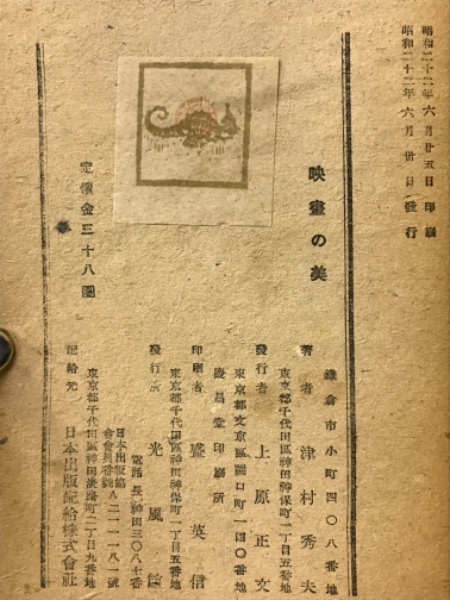 昭和二十二年六月廿五日印刷
昭和二十二年六月卅日發行
映畫の美
定價金三十八圓
鎌倉市小町四〇八番地
著者 津村秀夫
東京都千代田區神田神保町一丁目五番地
發行者 上原正文
東京都文京區關口町一四〇番地
慶昌堂印刷所
印刷者 盛英信
東京都千代田區神田神保町一丁目五番地
發行所 光風館
電話長神田三〇八七番
日本出版協會會員番號A二一一一八一號
東京都千代田區神田淡路町二丁目九番地
配給元 日本出版配給株式會社